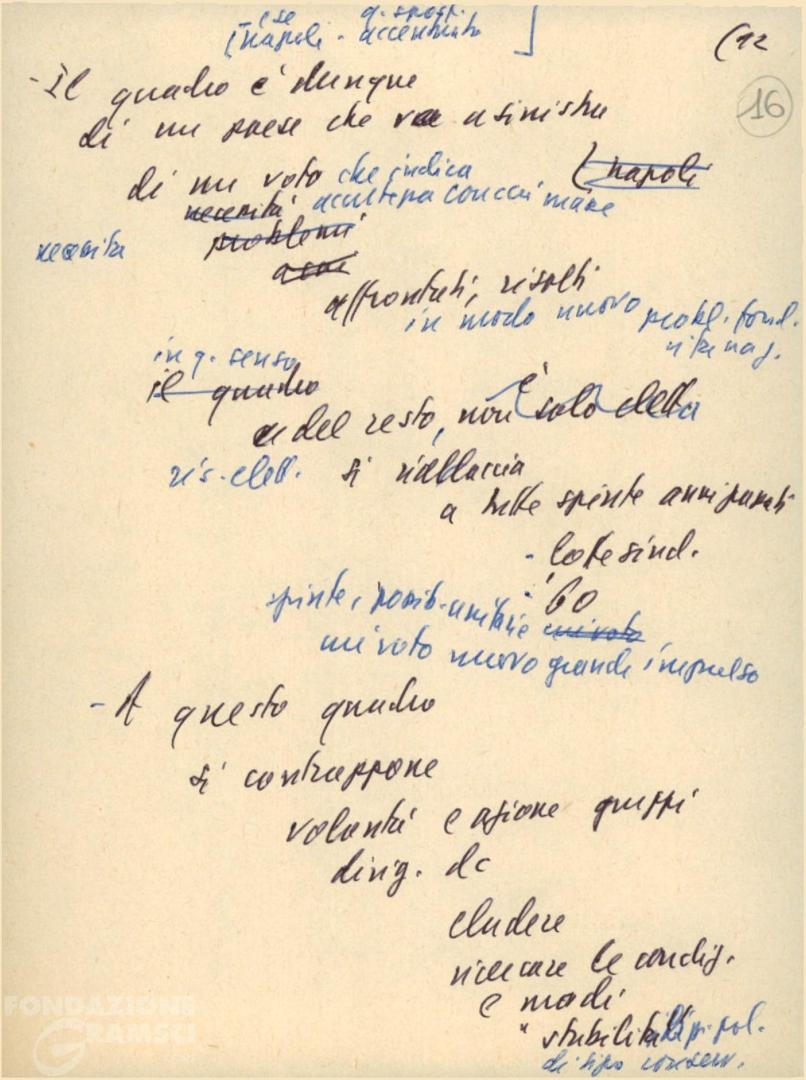 e se q. spost.
[napoli - accentuato ]
(12
16
- Il quadro è dunque
di un paese che va a sinistra
di un voto che indica (napoli
necessità accultena conccui mare
necessita problemi
affrontati, risolti
in modo nuovo probl. fond.
vita naz.
in q. senso
il quadro
e del resto, non è solo detta
ris. elett. si riallaccia
a tutte spinte anni passati
- lotte sind.
- '60
spinte, possib. unitarie un voto
un voto nuovo grande impulso
- A questo quadro
si contrappone
volontà e azione gruppi
dirig. dc
eludere
ricercare le condiz.
e modi
" stabilità pol.
di tipo conserv.
FONDAZIONE
GRAMSCI